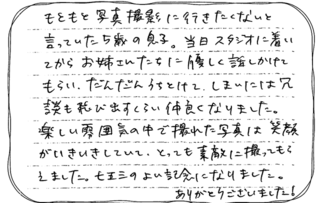 もともと写真撮影に行きたくないと
言っていた5歳の息子。当日スタジオに着い
てからお姉さんたちに優しく話しかけて
もらい、だんだんうちとけて、しまいには冗
談も飛び出すくらい仲良くなりました。
楽しい雰囲気の中で撮れた写真は笑顔
がいきいきしていて、とっても素敵に撮ってもら
えました。七五三のよい記念になりました。
ありがとうございました!